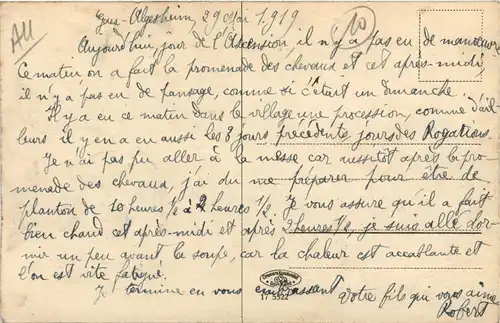 All
10
Gau-Algesheim, 29 Mai 1919
Aujourd'hui, jour de l'Ascension il n'y a pas eu de manœuvre.
Ce matin on a fait la promenade des chevaux et cet après-midi,
il n'y a pas eu de pansage, comme si c'était un dimanche
Il y a eu ce matin dans le village une procession, comme d'ail
leurs il y en a eu aussi les 3 jours précédents, jours des Rogations.
Je n'ai pas pu aller à la messe car aussitôt après la pro
menade des chevaux, j'ai du me préparer pour être de
planton de 10 heures ½ à 2 heures ½. Je vous assure qu'il a fait
bien chaud cet après-midi et après 2 heures ½, je suis allé dor-
mir un peu avant la soupe, car la chaleur est accablante et
l'on est vite fatigué.
Je termine en vous embrassant
votre fils qui vous aime
Robert
17 5522